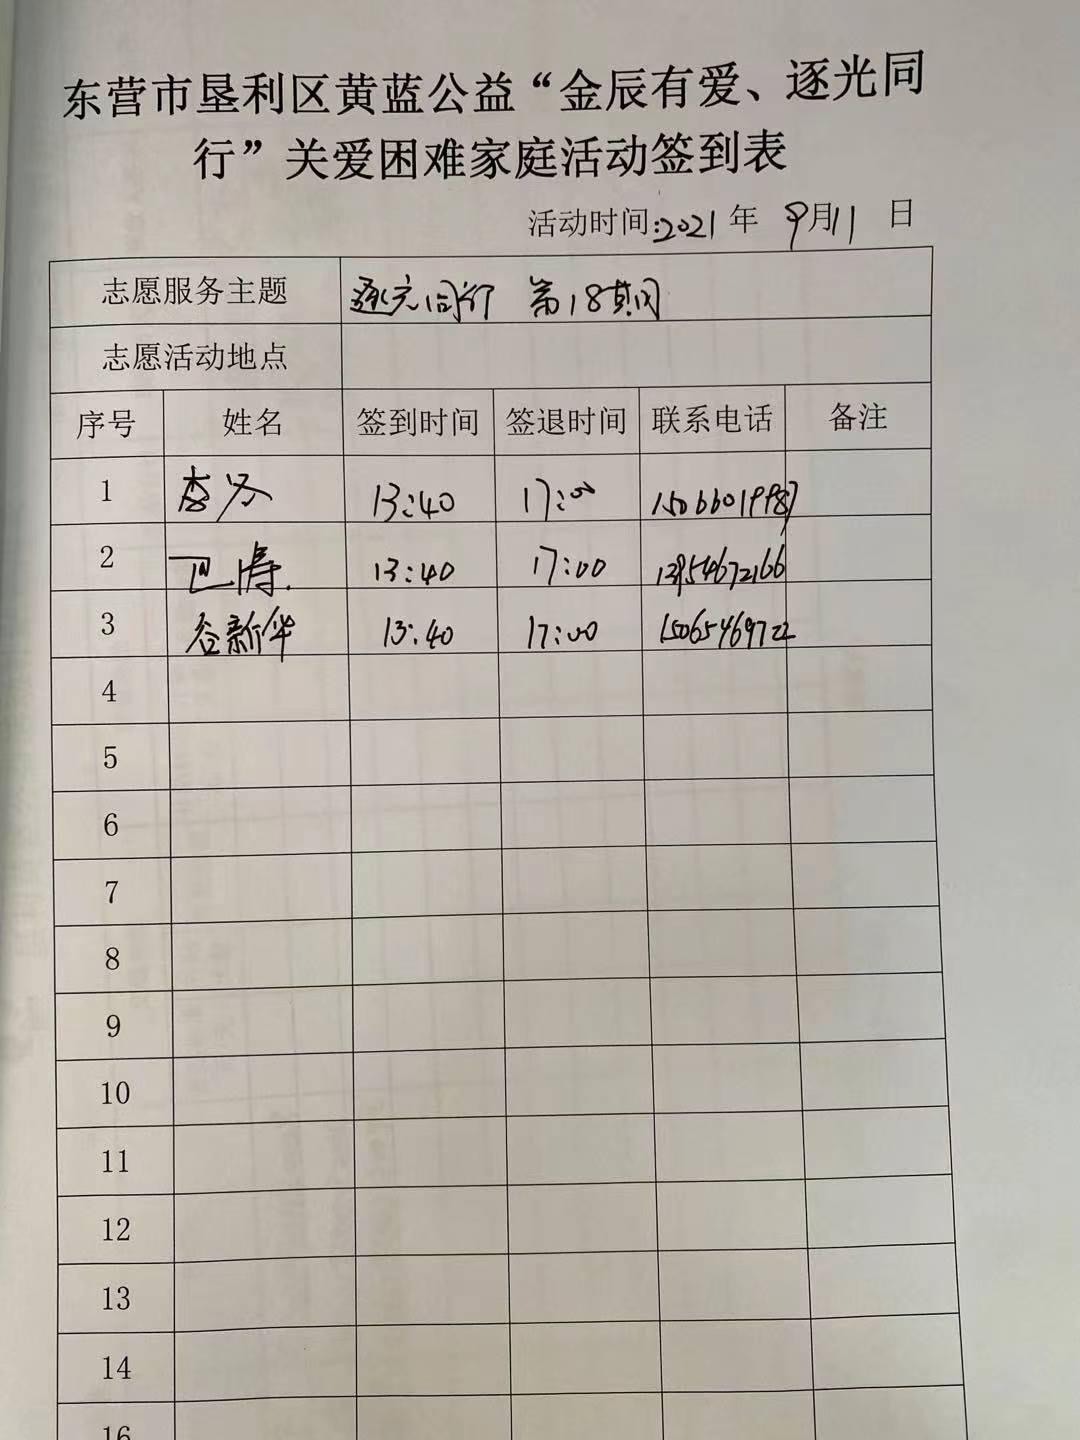 东营市垦利区黄蓝公益“金辰有爱、逐光同
行”关爱困难家庭活动签到表
活动时间:2021年 9月11日
志愿服务主题 逐光同行 第18期
志愿活动地点
序号 姓名 签到时间 签退时间 联系电话 备注
1 李 13:40 17:00 15066019987
2 卫涛 13:40 17:00 13954672166
3 谷新华 13:40 17:00 15065469722
4
5
6
7
8
9
10
11
12
13
14
16